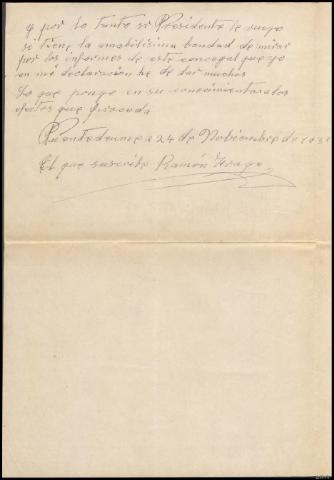 y por lo tanto sr Presidente le ruego
si tiene la amabilisima bondad de mirar
por los informes de este concegal que yo
en mi declaración he de dar muchos
Lo que pongo en su conocimiento a los
efectos que proceda
Puentedeume a 24 de Nobiembre de
El que suscribe Ramón